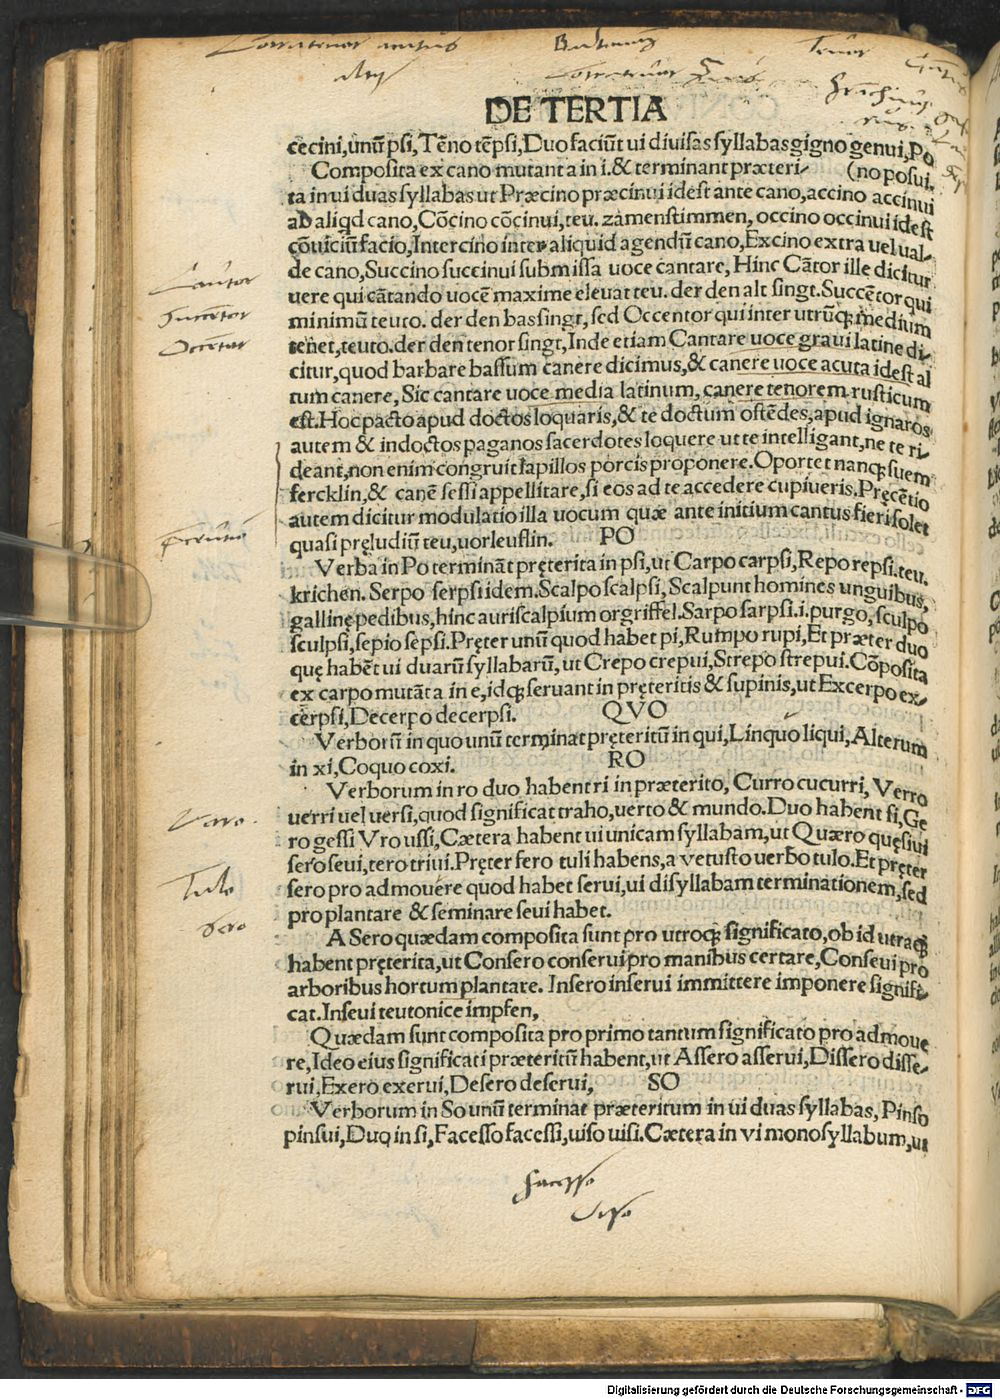 DE TERTIA
cecini,unū psi, Tēno tēpsi, Duo faciūt ui diuisas syllabas gigno genui, Po
Composita ex cano mutant a in i. & terminant præteri- (no posui.
ta in ui duas syllabas ut Præcino præcinui idest ante cano, accino accinui
ad aliqd cano, Cōcino cōcinui, teu. zamenstimmen, occino occinui idest
cōuiciū facio, Intercino inter aliquid agendū cano, Excino extra uel ual-
de cano, Succino succinui submissa uoce cantare, Hinc Cātor ille dicitur
uere qui cātando uocē maxime eleuat teu. der den alt singt. Succētor qui
minimū teuto. der den bas singt, sed Occentor qui inter utrūq; medium
tenet, teuto. der den tenor singt, Inde etiam Cantare uoce graui latine di-
citur, quod barbare bassum canere dicimus, & canere uoce acuta idest al
tum canere, Sic cantare uoce media latinum, canere tenorem rusticum
est. Hoc pacto apud doctos loquaris, & te doctum ostēdes, apud ignaros
autem & indoctos paganos sacerdotes loquere ut te intelligant, ne te ri-
deant, non enim congruit lapillos porcis proponere. Oportet nanq; suem
fercklin, & canē sessi appellitare, si eos ad te accedere cupiueris, Pręcētio
autem dicitur modulatio illa uocum quæ ante initium cantus fieri solet
quasi pręludiū teu, uorleuflin. PO
Verba in Po termināt pręterita in psi, ut Carpo carpsi, Repo repsi. teu.
krichen. Serpo serpsi idem. Scalpo scalpsi, Scalpunt homines unguibus,
gallinę pedibus, hinc auriscalpium orgriffel. Sarpo sarpsi. i. purgo, sculpo
sculpsi, sepio sepsi. Pręter unū quod habet pi, Rumpo rupi, Et præter duo
quę habēt ui duarū syllabarū, ut Crepo crepui, Strepo strepui. Cōposita
ex carpo mutāt a in e, idq; seruant in pręteritis & supinis, ut Excerpo ex-
cerpsi, Decerpo decerpsi. QVO
Verborū in quo unū terminat pręteritū in qui, Linquo liqui, Alterum
in xi, Coquo coxi. RO
Verborum in ro duo habent ri in præterito, Curro cucurri, Verro
uerri uel uersi, quod significat traho, uerto & mundo. Duo habent si, Ge
ro gessi Vro ussi, Cætera habent ui unicam syllabam, ut Quæro quęsiui
sero seui, tero triui. Pręter fero tuli habens, a vetusto uerbo tulo. Et pręter
sero pro admouere quod habet serui, ui disyllabam terminationem, sed
pro plantare & seminare seui habet.
A Sero quædam composita sunt pro utroq; significato, ob id utraq;
habent pręterita, ut Consero conserui pro manibus certare, Conseui pro
arboribus hortum plantare. Insero inserui immittere imponere signifi-
cat. Inseui teutonice impfen,
Quædam sunt composita pro primo tantum significato pro admoue
re, Ideo eius significati præteritū habent, ut Assero asserui, Dissero disse-
rui, Exero exerui, Desero deserui, SO
Verborum in So unū terminat præteritum in ui duas syllabas, Pinso
pinsui, Duo in si, Facesso facessi, uiso uisi. Cætera in vi monosyllabum, ut
Cantor
Succentor
Occentor
Verro.
Tulo
Sero
Facesso
Viso
Digitalisierung gefördert durch die Deutsche Forschungsgemeinschaft - DFG